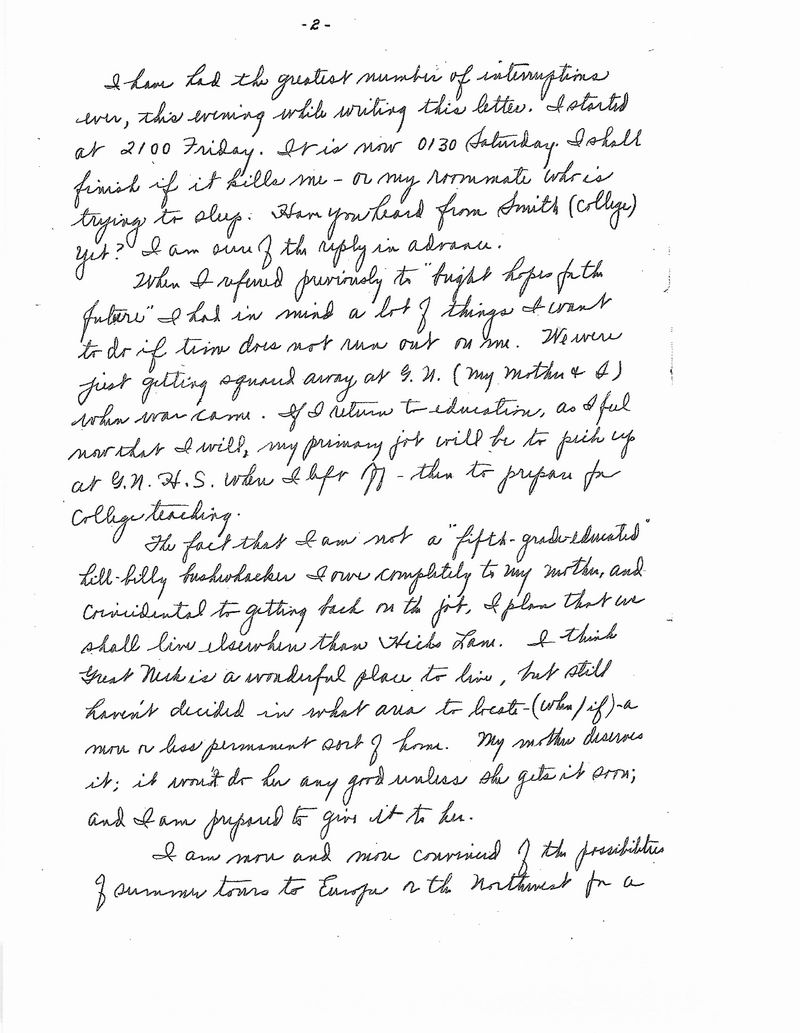 -2-
I have had the greatest number of interruptions
ever, this evening while writing this letter. I started
at 2100 Friday. It is now 0130 Saturday. I shall
finish if it kills me - or my roommate who is
trying to sleep. Have you heard from Smith (College)
yet? I am sure of the reply in advance.
When I referred previously to "bright hopes for the
future" I had in mind a lot of things I want
to do if time does not run out on me. We were
just getting squared away at G.N. (my mother & I)
when war came. If I return to education, as I feel
now that I will, my primary job will be to pick up
at G.N.H.S. where I left off - then to prepare for
College teaching.
The fact that I am not a "fifth-grade-educated"
hill-billy bushwhacker I owe completely to my mother, and
coincidental to getting back on the job, I plan that we
shall live elsewhere than Hicks Lane. I think
Great Neck is a wonderful place to live, but still
haven't decided in what area to locate - (when/if) - a
more or less permanent sort of home. My mother deserves
it; it won't do her any good unless she gets it soon;
and I am prepared to give it to her.
I am more and more convinced of the possibilities
of summer tours to Europe or the Northwest for a